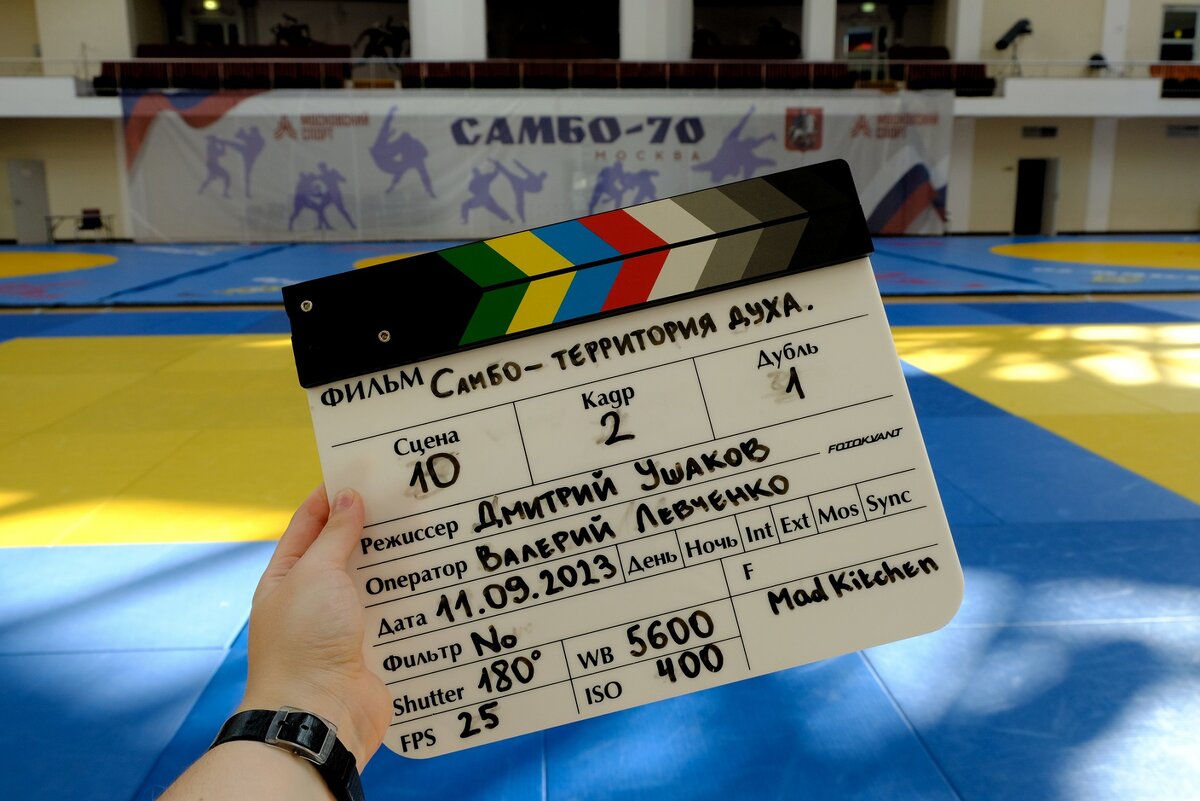 МОСКОВСКИЙ СПОРТ
САМБО-70
МОСКВА
МОСКОВСКИЙ СПОРТ
ФИЛЬМ Самбо-территория духа.
Сцена 10 Кадр 2 Дубль 1
FOTOKVANT
Режиссер Дмитрий Ушаков
Оператор Валерий Левченко
Дата 11.09.2023 День Ночь Int Ext Mos Sync
Фильтр No F
Mad Kitchen
Shutter 180° WB 5600
FPS 25 ISO 400